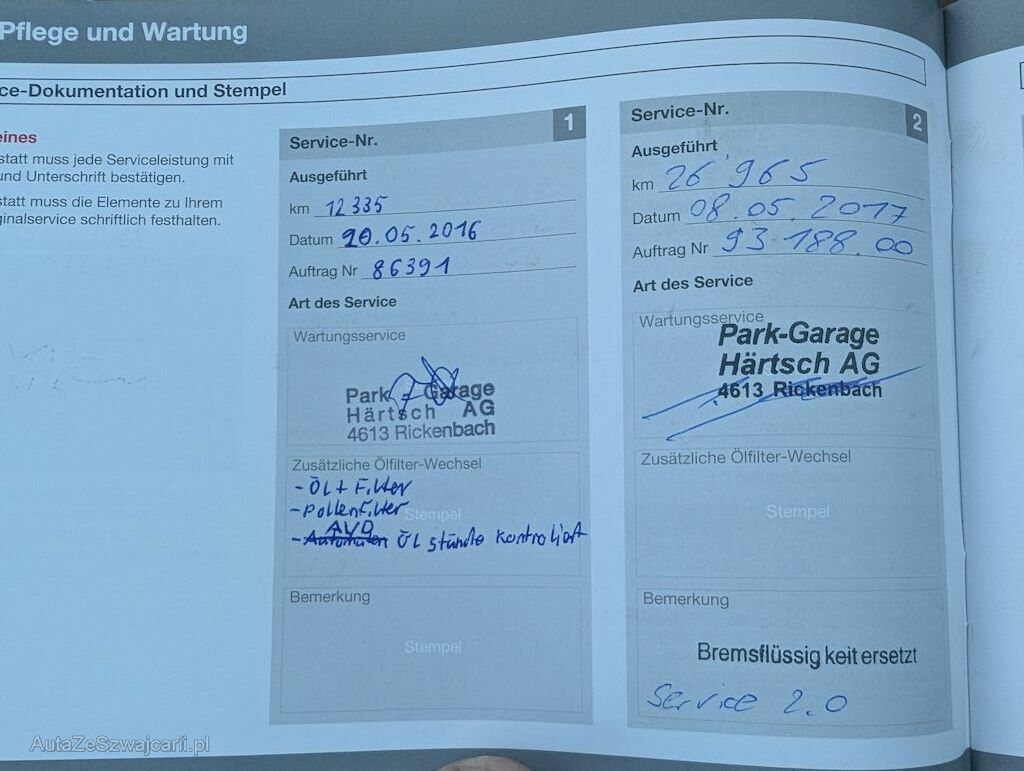 Pflege und Wartung
ce-Dokumentation und Stempel
eines
statt muss jede Serviceleistung mit
und Unterschrift bestätigen.
statt muss die Elemente zu Ihrem
ginalservice schriftlich festhalten.
Service-Nr. 1
Ausgeführt
km 12335
Datum 20.05.2016
Auftrag Nr 86391
Art des Service
Wartungsservice
Park - Garage
Härtsch AG
4613 Rickenbach
Zusätzliche Ölfilter-Wechsel
- Öl + Filter
- Pollenfilter
Stempel
- AVD Ölstände kontroliert
Bemerkung
Stempel
Service-Nr. 2
Ausgeführt
km 26'965
Datum 08.05.2017
Auftrag Nr 93188.00
Art des Service
Wartungsservice
Park-Garage
Härtsch AG
4613 Rickenbach
Zusätzliche Ölfilter-Wechsel
Stempel
Bemerkung
Bremsflüssig keit ersetzt
Service 2.0
AutaZeSzwajcarii.pl